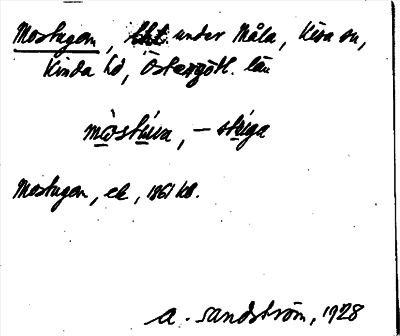 Mostugan, tht under Måla, Kisa sn,
Kinda hd, Östergötl. län
mòstúua, – stuga
Mostugan, ek, 1861 kb.
A. Sandström, 1928